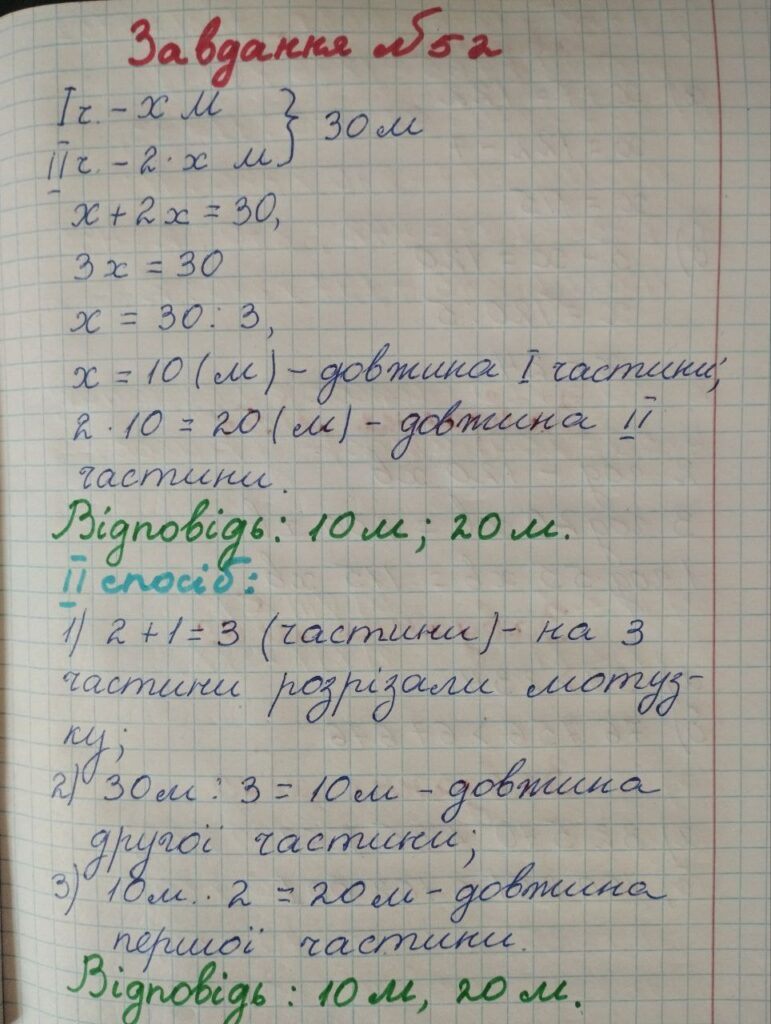 Завдання №52
I ч. – х м
II ч. – 2 · х м } 30 м
х + 2х = 30,
3х = 30
х = 30 : 3,
х = 10 (м) – довжина I частини;
2 · 10 = 20 (м) – довжина II
частини.
Відповідь: 10 м; 20 м.
II спосіб:
1) 2 + 1 = 3 (частини) – на 3
частини розрізали мотуз-
ку;
2) 30 м : 3 = 10 м – довжина
другої частини;
3) 10 м · 2 = 20 м – довжина
першої частини.
Відповідь : 10 м, 20 м.